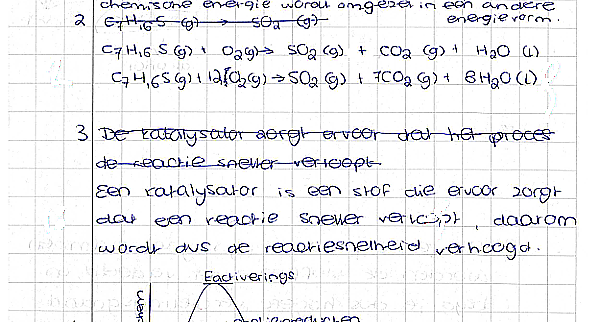 chemische energie wordt omgezet in een andere
2 C7H16S (g) → SO2 (g) energievorm.
C7H16S (g) + O2(g) → SO2 (g) + CO2 (g) + H2O (l)
C7H16S(g) + 12 O2(g) → SO2(g) + 7CO2(g) + 8H2O(l)
3 De katalysator zorgt ervoor dat het proces
de reactie sneller verloopt
Een katalysator is een stof die ervoor zorgt
dat een reactie sneller verloopt, daarom
wordt dus de reactiesnelheid verhoogd.
Eactiverings
chem